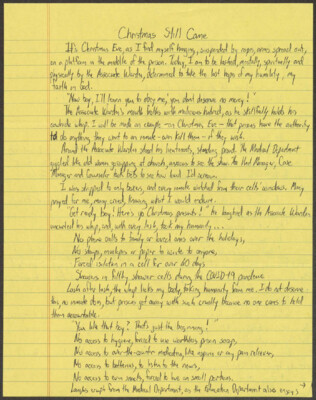 Christmas Still Came
It's Christmas Eve, as I find myself hanging, suspended by ropes, arms spread out,
on a platform in the middle of the prison. Today, I am to be tested, mentally, spiritually and
physically by the Associate Warden, determined to take the last bit of my humanity, my
faith in God.
"Now boy, I'll learn you to deny me, you don't deserve no mercy!"
The Associate Warden's mouth with hatred, as he holds his
whip. I will be made an example - on Christmas Eve - that prison have the authority
to do anything they want to an inmate - even kill them - if they wish.
Around the Associate Warden stood his henchmen, standing proud. The Medical Department
like old women of church, anxious to see the show. The Unit Manager, Case
Manager and Counselor took bets to see how loud I'd scream.
I was stripped to only boxers, and every inmate watched from their cells' windows. Many
prayed for me, many cried, knowing what I would endure.
"Get ready boy! Here's yo Christmas presents!" he laughed as the Associate Warden
his whip, and with every lash, took my humanity...
No phone calls to family or loved ones over the holidays,
No stamps, envelopes or paper to write to anyone,
Forced isolation in a cell for over 60 days
Showers in filthy shower cells during the COVID-19 pandemic
Lash after lash, the whip takes my body, taking humanity from me. I do not deserve
this, no inmate does, but prisons get away with such cruelty because no one cares to hold
them accountable.
"You like that boy? That's just the beginning!"
No access to hygiene, forced to use worthless prison soap.
No access to over-the-counter medication, like aspirin or any pain relievers,
No access to batteries, to listen to the news,
No access to even snacks, forced to live on small portions.
Laughs erupt from the Medical Department, as the Education Department alike enjoys